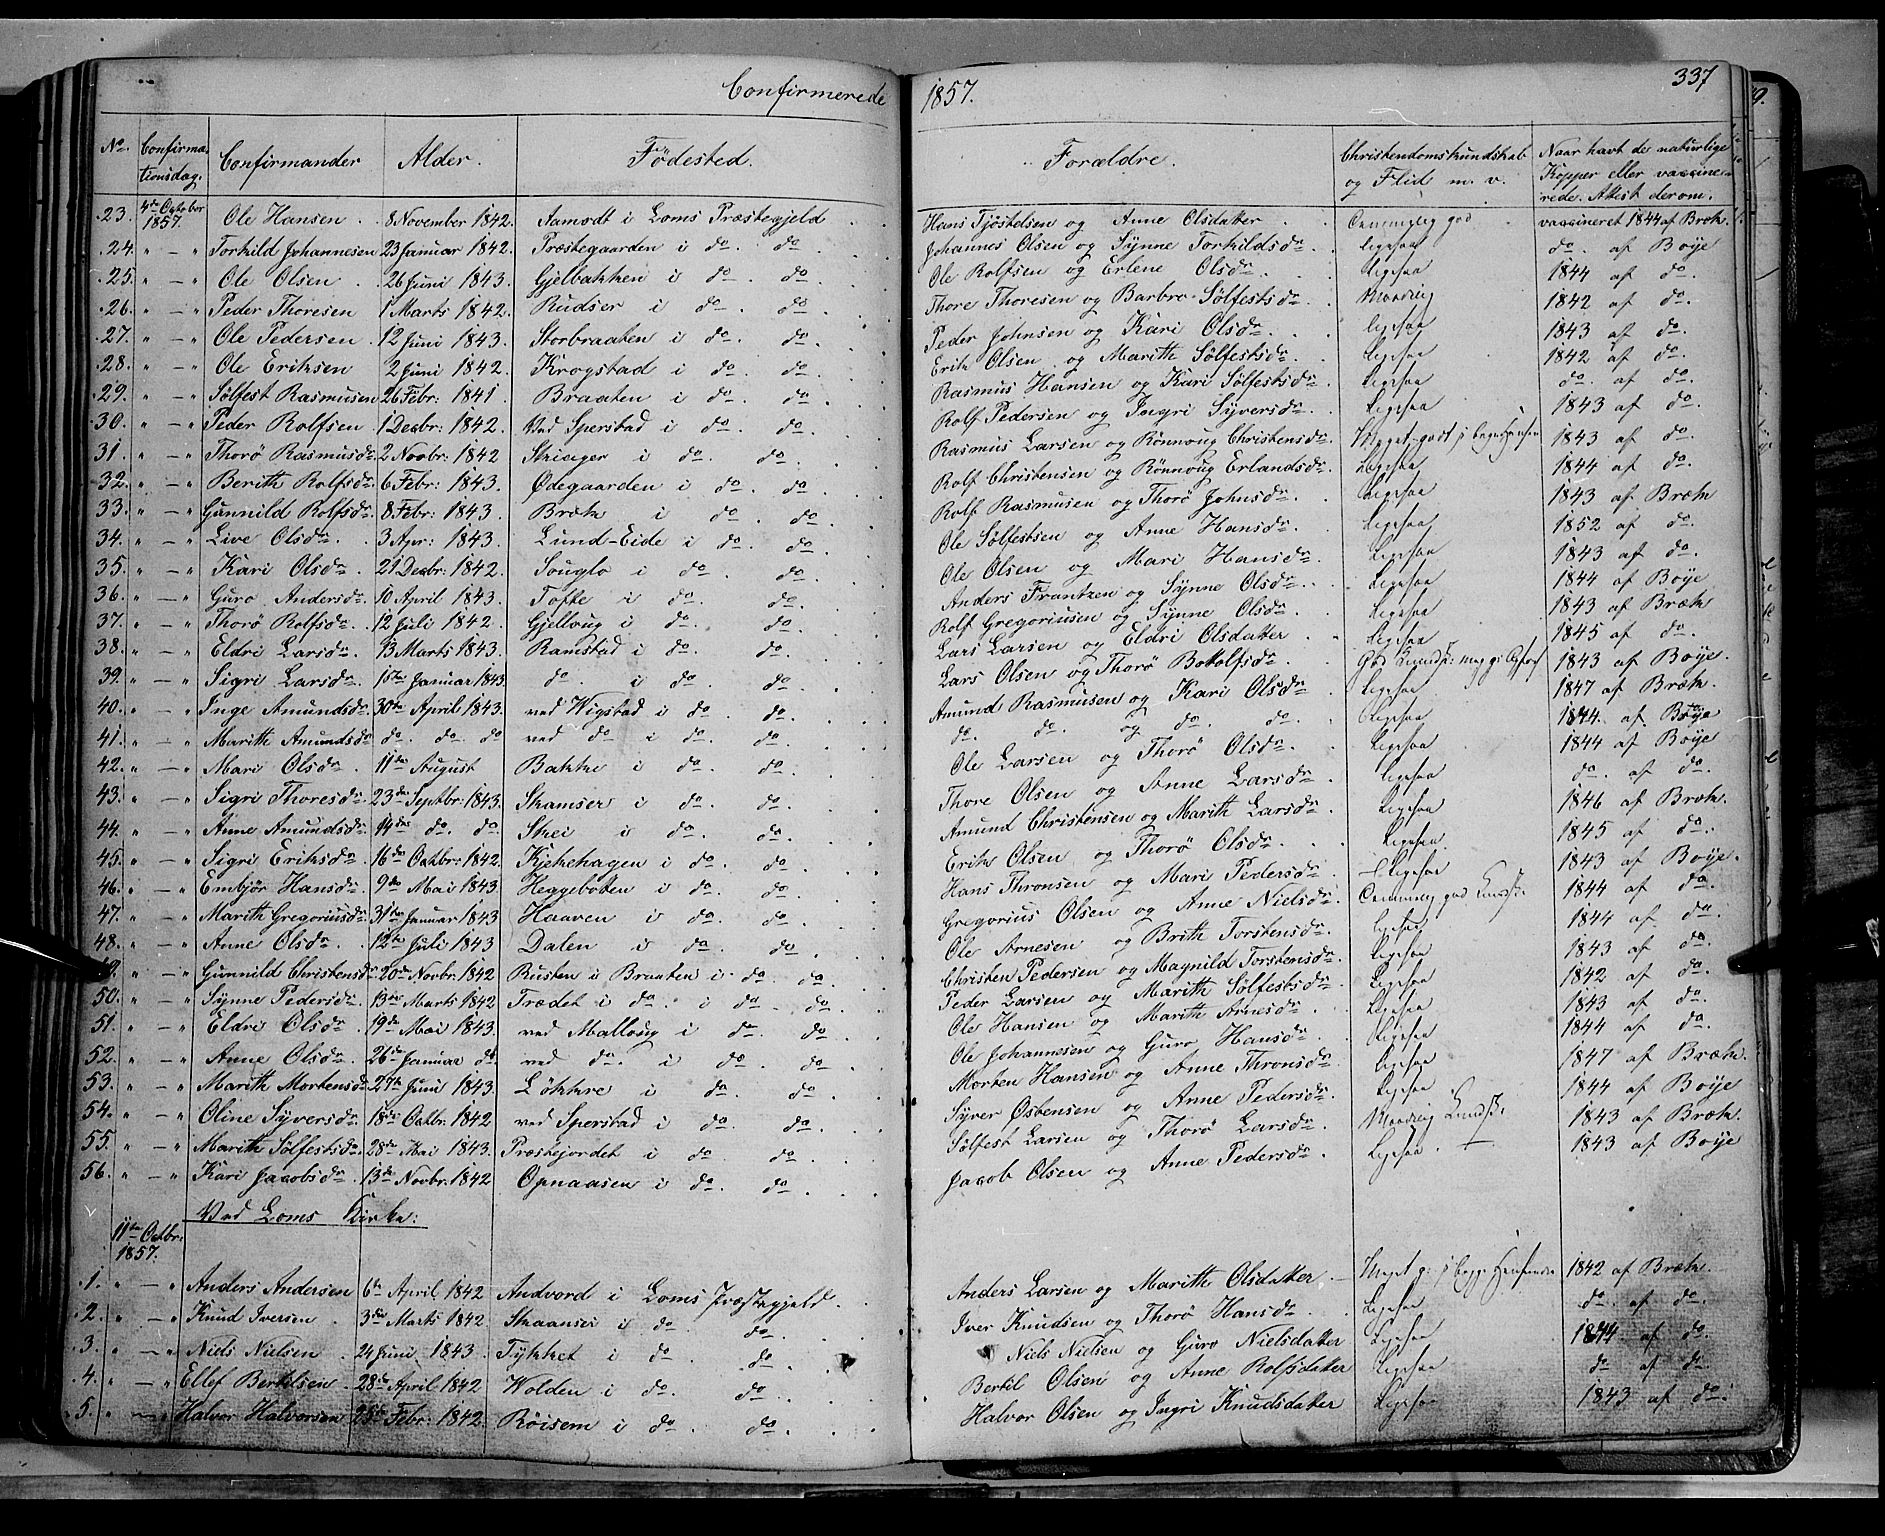 Confirmerede 1857. 337
No. Confirmationsdag. Confirmander Alder. Fødested. Forældre. Christendomskundskab og Flid m. v. Naar havt de naturlige Kopper eller vaccinerede. Attest derom.
23. 4de October 1857. Ole Hansen 8 November 1842. Aamodt i Loms Præstegjeld Hans Tjøstelsen og Anne Olsdatter Temmelig god vaccineret 1844 af Bræk.
24. " — " Torkild Johannesen 23 Januar 1842. Præstegaarden i do. do Johannes Olsen og Synne Torkildsdr ligesaa do. af Boye
25. " — " Ole Olsen 26 Juni 1843. Gjelbakken i do. do. Ole Rolfsen og Erlene Olsdr. ligesaa 1844 af do.
26. " — " Peder Thoresen 1 Marts 1842. Rudser i do. do. Thore Thoresen og Barbro Sølfestsdr. Maadelig 1842 af do.
27. " — " Ole Pedersen 12 Juni 1843. Storbraaten i do. do Peder Johnsen og Kari Olsdr. ligesaa 1843 af do.
28. " — " Ole Eriksen 2 Juni 1842. Krogstad i do. do. Erik Olsen og Marith Sølfestsdr. ligesaa 1842 af do.
29. " — " Sølfest Rasmusen 26 Febr: 1841 Braaten i do. do. Rasmus Hansen og Kari Sølfestsdr. ligesaa do. af do.
30. " — " Peder Rolfsen 1 Decbr: 1842. Ved Sperstad i do. do Rolf Pedersen og Ingri Syversdr. ligesaa 1843 af do.
31. " — " Thorø Rasmusdr. 2 Novbr: 1842 Skiager i do. do. Rasmus Larsen og Rønnoug Christensdr. Meget godt i begge Henseender 1843 af do.
32. " — " Berith Rolfsdr. 6 Febr: 1843. Ødegaarden i do. do. Rolf Christensen og Rønnoug Erlandsdr. Ligesaa 1844 af do.
33. " — " Gunnild Rolfsdr. 8 Febr: 1843. Bræk i do. do. Rolf Rasmusen og Thorø Johnsdr. ligesaa 1843 af Bræk
34. " — " Live Olsdr. 3 Apr: 1843. Lund-Eide i do. do. Ole Sølfestsen og Anne Hansdr. ligesaa 1852 af do
35. " — " Kari Olsdr. 21 Decbr: 1842. Souglo i do. do. Ole Olsen og Mari Hansdr. Ligesaa 1843 af do.
36. " — " Guro Andersdr 10 April 1843. Tofte i do. do. Anders Frantzen og Synne Olsdr. Ligesaa 1844 af Boye
37. " — " Thorø Rolfsdr. 12 Juli 1842. Gjelloug i do. do. Rolf Gregoriusen og Synne Olsdr. Ligesaa 1843 af Bræk.
38. " — " Eldri Larsdr. 13 Marts 1843. Ramstad i do. do. Lars Larsen og Eldri Olsdatter Ligesaa 1845 af do.
39. " — " Sigri Larsdr. 15te Januar 1843. do. i do. do. Lars Olsen og Thorø Botolfsdr. God 1843 af Boye.
40. " — " Inge Amundsdr. 30te April 1843. ved Wigstad i do. do. Amund Rasmusen og Kari Olsdr. Ligesaa 1847 af Bræk.
41. " — " Marith Amundsdr do. do. do ved do i do. do. do. do. og do. do. Ligesaa 1844. af Boye
42. " — " Mari Olsdr 11te August Bakke i do. do. Ole Larsen og Thorø Olsdr. Ligesaa 1844 af Boye
43. " — " Sigri Thoresdr. 23de Septbr: 1843. Skamser i do. do. Thore Olsen og Anne Larsdr. ligesaa do. af do.
44. " — " Anne Amundsdr. 14de do. do. Skei i do. do. Amund Christensen og Marith Larsdr. Ligesaa 1846 af Bræk.
45. " — " Sigri Eriksdr. 16de Octbr: 1842. Kjekehagen i do. do. Erik Olsen og Thorø Olsdr. Ligesaa. 1845 af do.
46. " — " Embjør Hansdr. 9de Mai 1843. Heggebotten i do. do. Hans Thronsen og Mari Pedersdr. Ligesaa 1843 af Boye.
47. " — " Marith Gregoriusdr. 31te Januar 1843 Haaven i do. do. Gregorius Olsen og Anne Nielsdr. Temmelig god Kundsk: 1844 af do.
48. " — " Anne Olsdr. 12te Juli 1843 Dalen i do. do. Ole Arnesen og Brith Torstensdr. ligesaa 1844 af do
49. " — " Gunnild Christensdr 20de Novbr: 1842 Rusten i Braaten i do. do. Christen Pedersen og Magnild Torstensdr. ligesaa 1843 af do.
50. " — " Synne Pedersdr. 13de Marts 1842 Trædet i do. i do. do. Peder Larsen og Marith Sølfestsdr. Ligesaa 1842 af do.
51. " — " Eldri Olsdr. 19de Mai 1843. ved Malloug i do. do. Ole Hansen og Marith Arnesdr. Ligesaa 1843 af do.
52. " — " Anne Olsdr. 26de Januar do. ved do. i do. do. Ole Johannesen og Guro Hansdr. Ligesaa 1844 af do.
53. " — " Marith Mortensdr. 27de Juni 1843. Løkkre i do. do. Morten Hansen og Anne Thronsdr. Ligesaa 1847 af Bræk.
54. " — " Oline Syversdr. 18de Octbr: 1842 ved Sperstad i do. do. Syver Østensen og Anne Pedersdr. Ligesaa 1844 af Boye
55. " — " Marith Sølfestsdr. 28de Mai 1843. Præstejordet i do. do. Sølfest Larsen og Thorø Larsdr. Maadelig Kundsk: 1843 af Bræk
56. " — " Kari Jacobsdr. 13de Novbr: 1842 Opnaasen i do. do. Jacob Olsen og Anne Pedersdr. Ligesaa. 1843 af Boye
Ved Loms Kirke:
11te Octbr: 1857.
1. " — " Anders Andersen 6te April 1842 Andvord i Loms Præstegjeld. Anders Larsen og Marith Olsdatter Meget g: i begge Henseender 1842 af Bræk.
2. " — " Knud Iversen 3die Marts 1842 Skaansei i do. do. Iver Knudsen og Thorø Hansdr Ligesaa do. af do.
3. " — " Niels Nielsen 24 Juni 1843. Tykket i do. do. Niels Nielsen og Guro Nielsdatter Ligesaa 1844 af do.
4. " — " Ellef Bertilsen 28de April 1842 Wolden i do. do. Bertil Olsen og Anne Rolfsdatter ligesaa do af do
5. " — " Halvor Halvorsen 25de Febr: 1842. Røisem i do. do. Halvor Olsen og Ingri Knudsdatter Ligesaa 1843 af do.